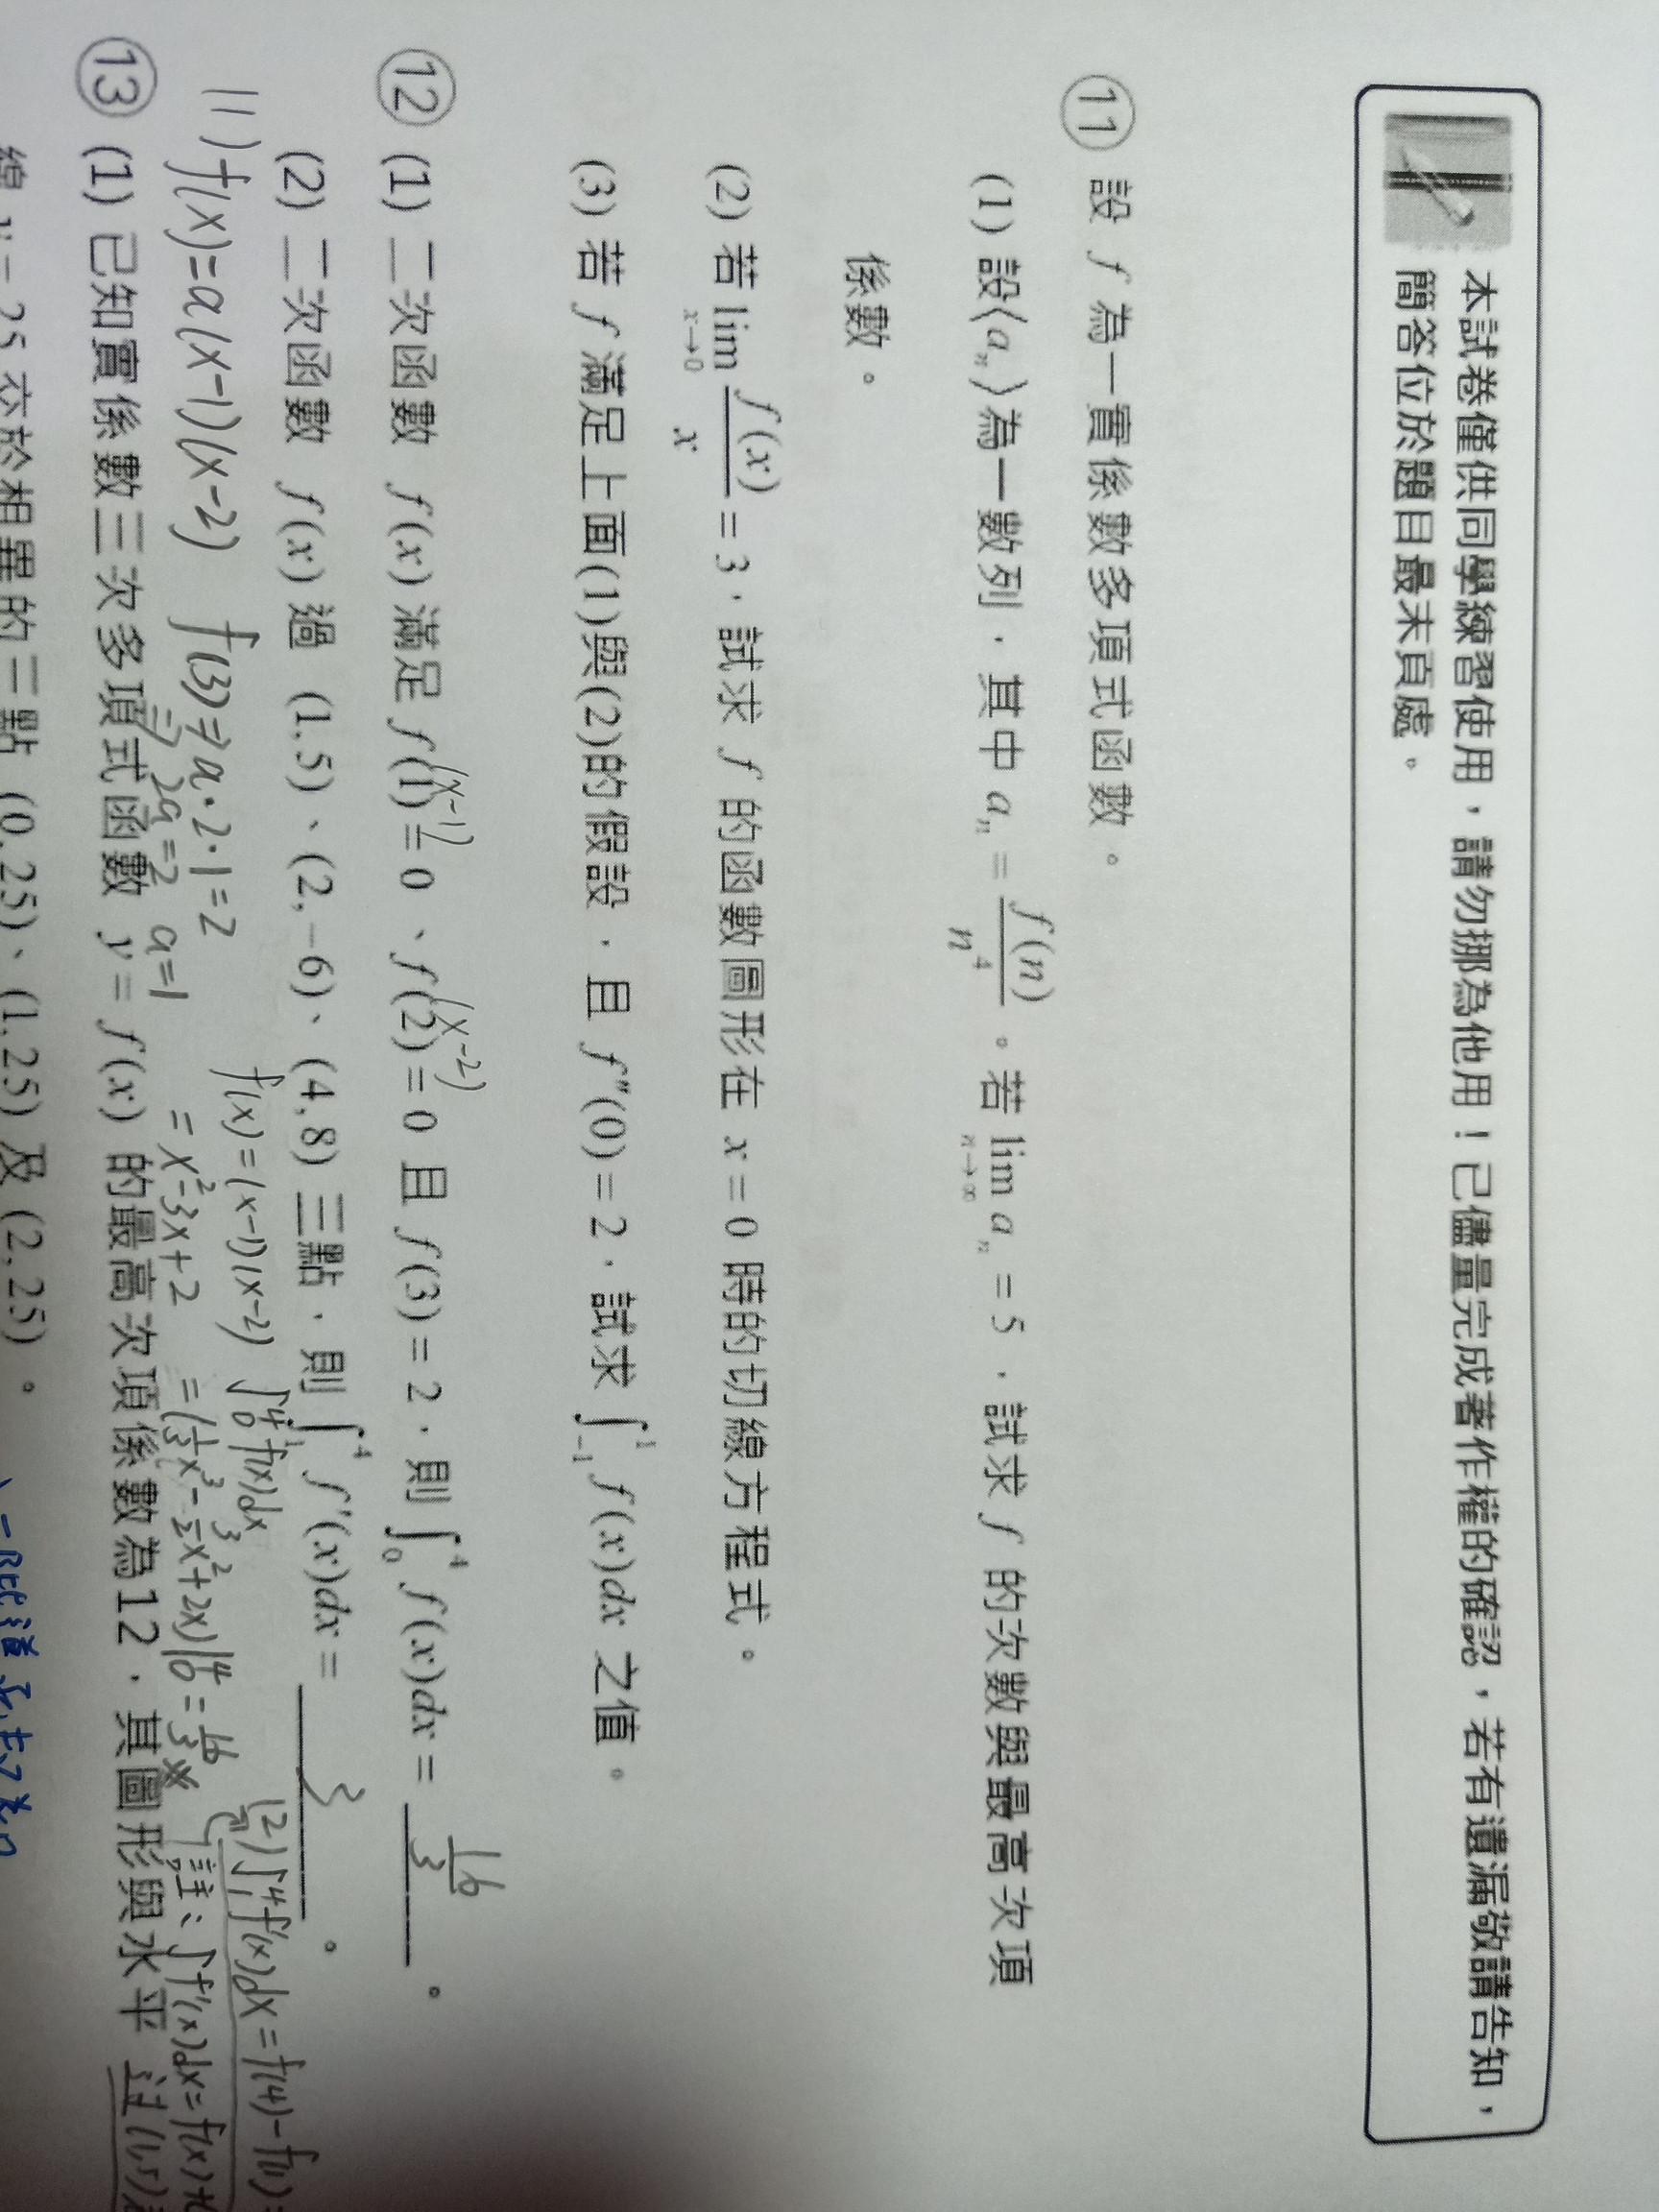 本試卷僅供同學練習使用，請勿挪為他用！已儘量完成著作權的確認，若有遺漏敬請告知，
簡答位於題目最末頁處。
⑪ 設 f 為一實係數多項式函數。
(1) 設⟨aₙ⟩為一數列，其中 aₙ = f(n)/n⁴。若 lim_{n→∞} aₙ = 5，試求 f 的次數與最高次項
係數。
(2) 若 lim_{x→0} f(x)/x = 3，試求 f 的函數圖形在 x = 0 時的切線方程式。
(3) 若 f 滿足上面(1)與(2)的假設，且 f″(0) = 2，試求 ∫_{-1}^{1} f(x)dx 之值。
(x-1) (x-2)
⑫ (1) 二次函數 f(x) 滿足 f(1) = 0、f(2) = 0 且 f(3) = 2，則 ∫_0^4 f(x)dx = 16/3。
(2) 二次函數 f(x) 過 (1,5)、(2,−6)、(4,8) 三點，則 ∫_1^4 f′(x)dx = 3。
(1) f(x)=a(x-1)(x-2) f(3)⇒a·2·1=2 f(x)=(x-1)(x-2) ∫_0^4 f(x)dx (2) ∫_1^4 f'(x)dx=f(4)-f(1)=
⇒2a=2 a=1 =x²-3x+2 =(1/3x³-3/2x²+2x)|_0^4=16/3 註：∫f'(x)dx=f(x)+
⑬ (1) 已知實係數三次多項式函數 y = f(x) 的最高次項係數為12，其圖形與水平
線 y = 25 交於相異的三點 (0,25)、(1,25) 及 (2,25)。